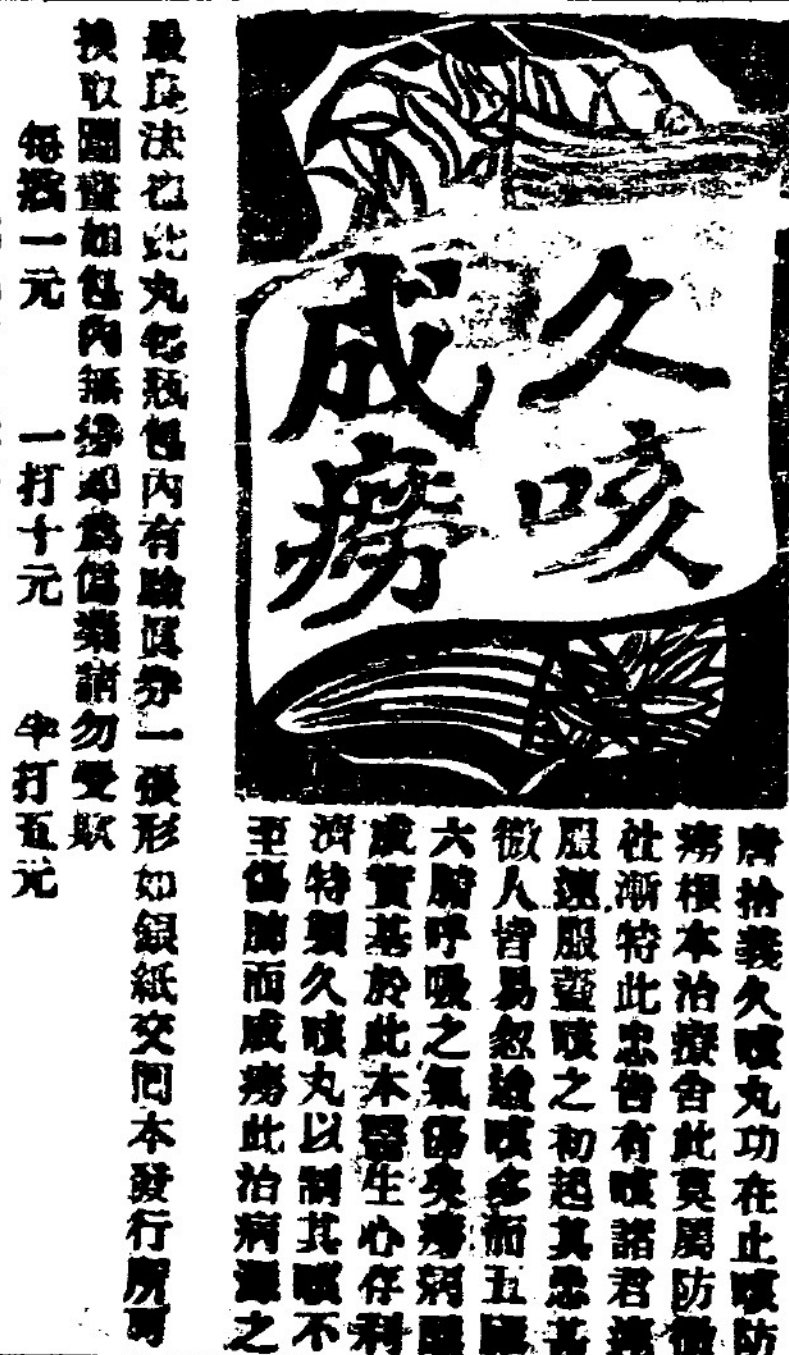 久咳
成癆
唐拾義久咳丸功在止咳防
癆根本治療舍此莫屬防微
杜漸特此忠告有咳諸君速
服速服蓋咳之初起其患甚
微人皆易忽迨咳多而五臟
六腑呼吸之氣傷矣癆病
成實基於此本醫生心存利
濟特製久咳丸以制其咳不
至傷肺而成癆此治病源之
最良法也此丸每瓶包內有驗眞券一張形如銀紙交回本發行所可
換取圖畫如包內無券即爲僞藥請勿受欺
每瓶一元 一打十元 半打五元